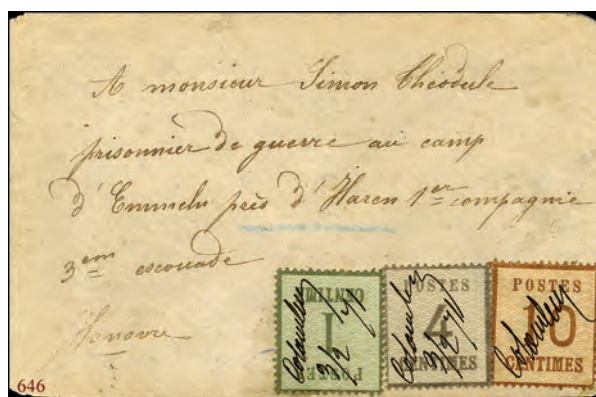 A monsieur Simon Théodule
prisonnier de guerre au camp
d'Emmeln près d'Haren 1er compagnie
3em escouade
Hanovre
CENTIME
1
POSTES
3/2 71
POSTES
4
CENTIMES
3/2 71
POSTES
10
CENTIMES
646